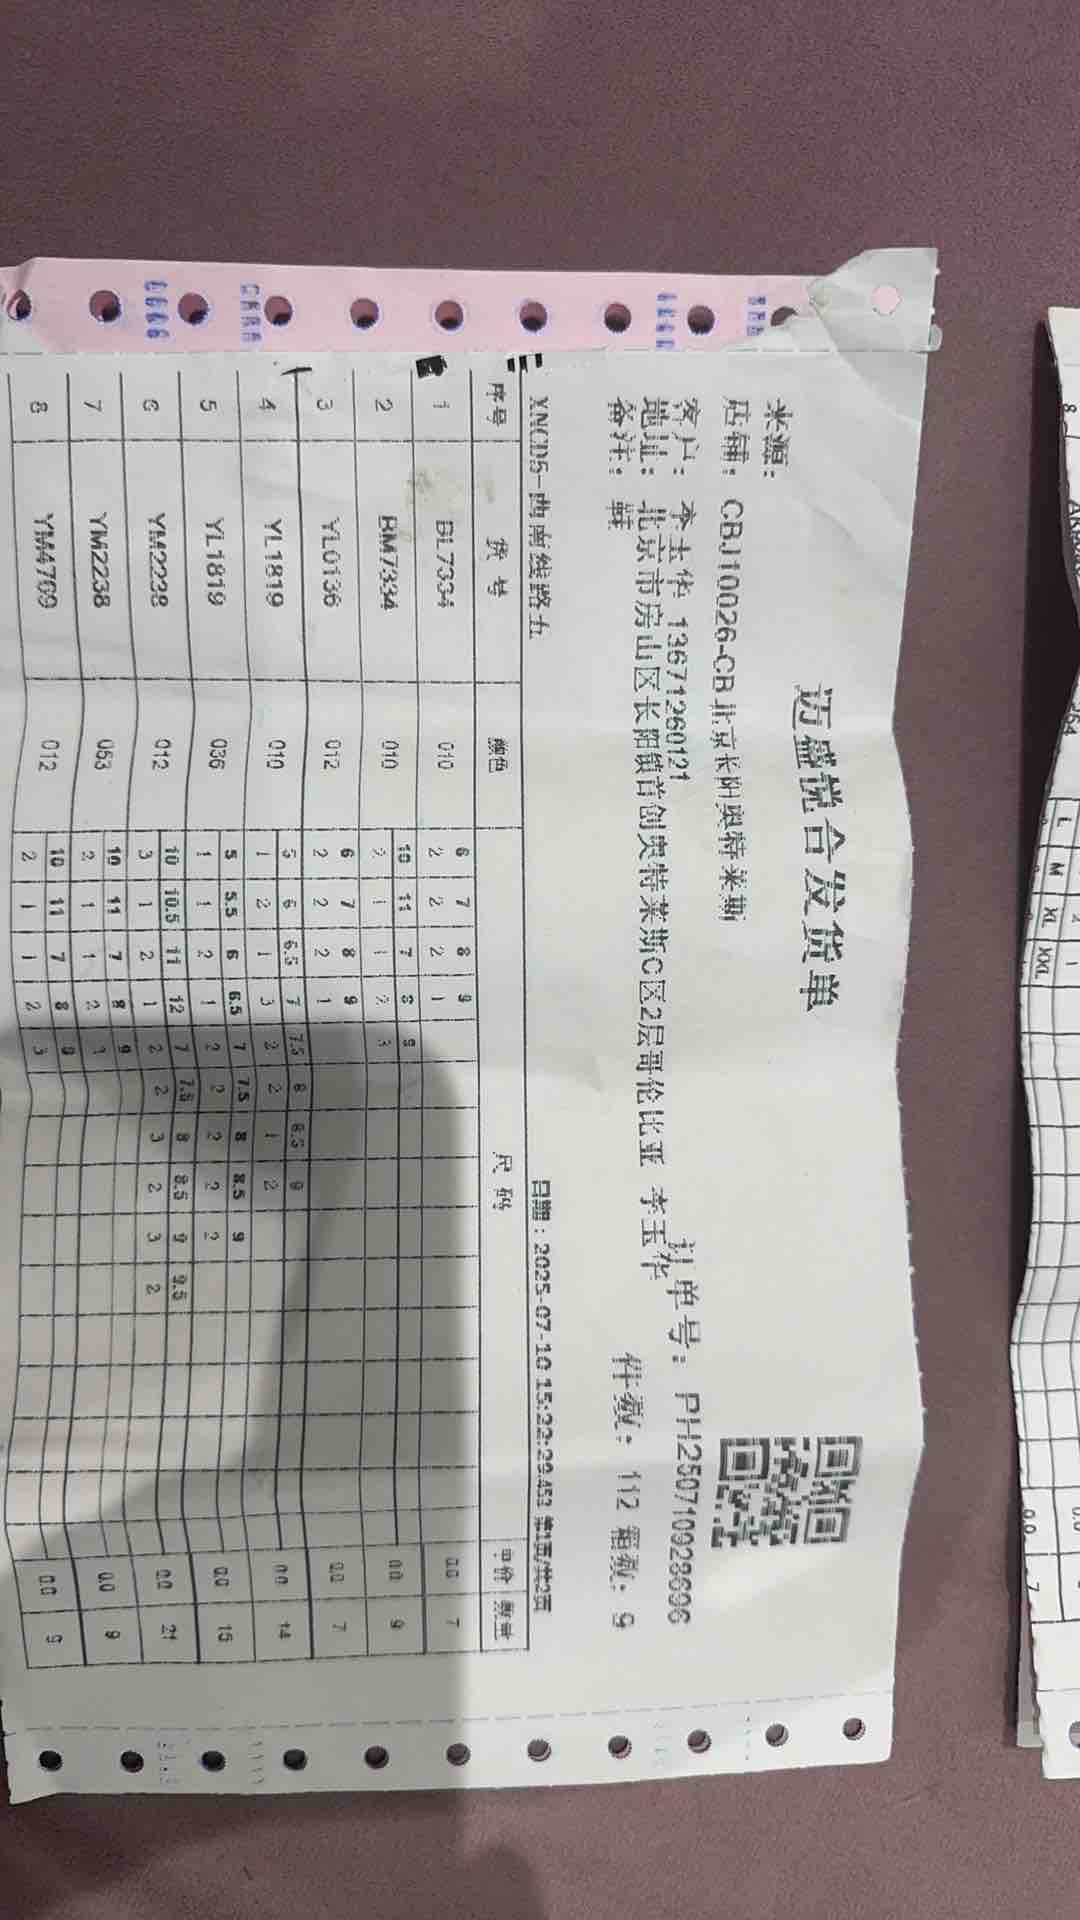 迈盛悦合发货单
来源：
店铺： CBJ10026-CB北京长阳奥特莱斯
客户： 李玉华 13671260121 订单号： PH250710928696
地址： 北京市房山区长阳镇首创奥特莱斯C区2层哥伦比亚 李玉华
备注： 鞋 件数： 112 箱数： 9
XNCD5-西南线路五 日期：2025-07-10 15:22:29.453 第1页/共2页
序号 货号 颜色 尺码 单价 数量
6 7 8 9
1 BL7334 010 2 2 2 1 0.0 7
10 11 7 8 9
2 BM7334 010 2 1 1 2 3 0.0 9
6 7 8 9
3 YL0136 012 2 2 2 1 0.0 7
5 6 6.5 7 7.5 8 8.5 9
4 YL1819 010 1 2 1 3 2 2 1 2 0.0 14
5 5.5 6 6.5 7 7.5 8 8.5 9
5 YL1819 036 1 1 2 1 2 2 2 2 2 0.0 15
10 10.5 11 12 7 7.5 8 8.5 9 9.5
6 YM2238 012 3 1 2 1 2 2 3 2 3 2 0.0 21
10 11 7 8 9
7 YM2238 053 2 1 1 2 3 0.0 9
10 11 7 8 9
8 YM4709 012 2 1 1 2 3 0.0 9
L M XL XXL